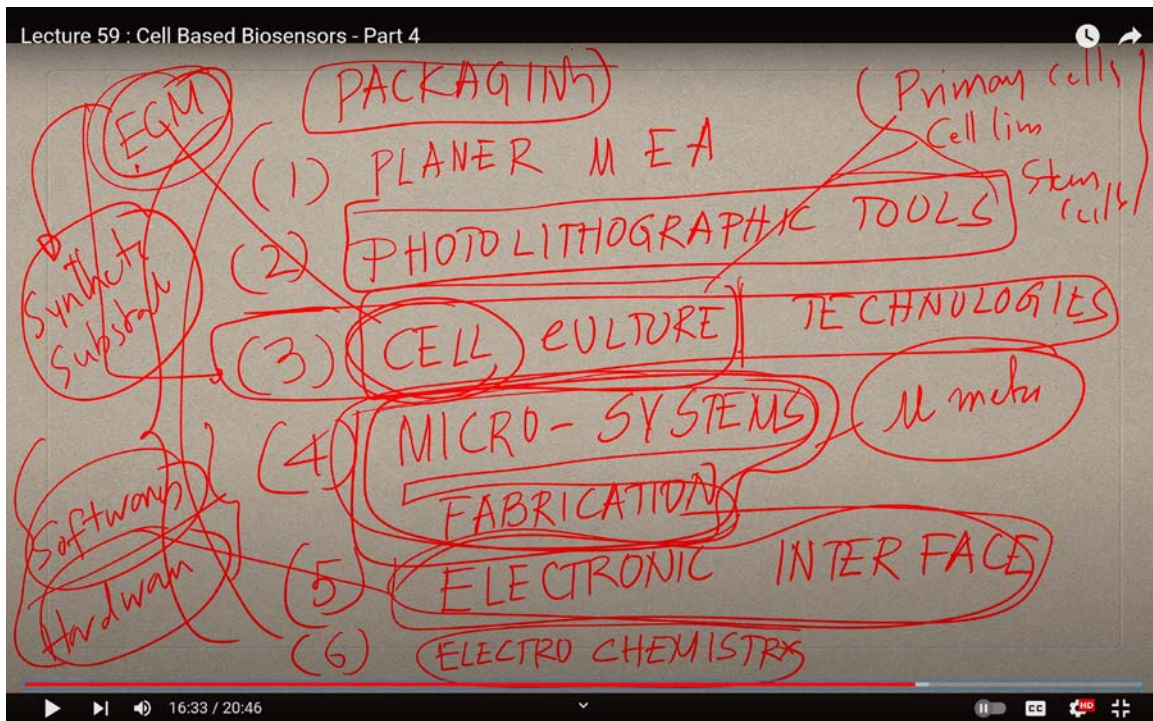 Lecture 59 : Cell Based Biosensors - Part 4
PACKAGING
EGM
Primary cells
Cell lins
Stem cells
(1) PLANER M E A
(2) PHOTOLITHOGRAPHIC TOOLS
Synthetic
(3) CELL CULTURE TECHNOLOGIES
(4) MICRO-SYSTEMS
FABRICATION
(5) ELECTRONIC INTERFACE
(6) ELECTRO CHEMISTRY
16:33 / 20:46
CC
HD